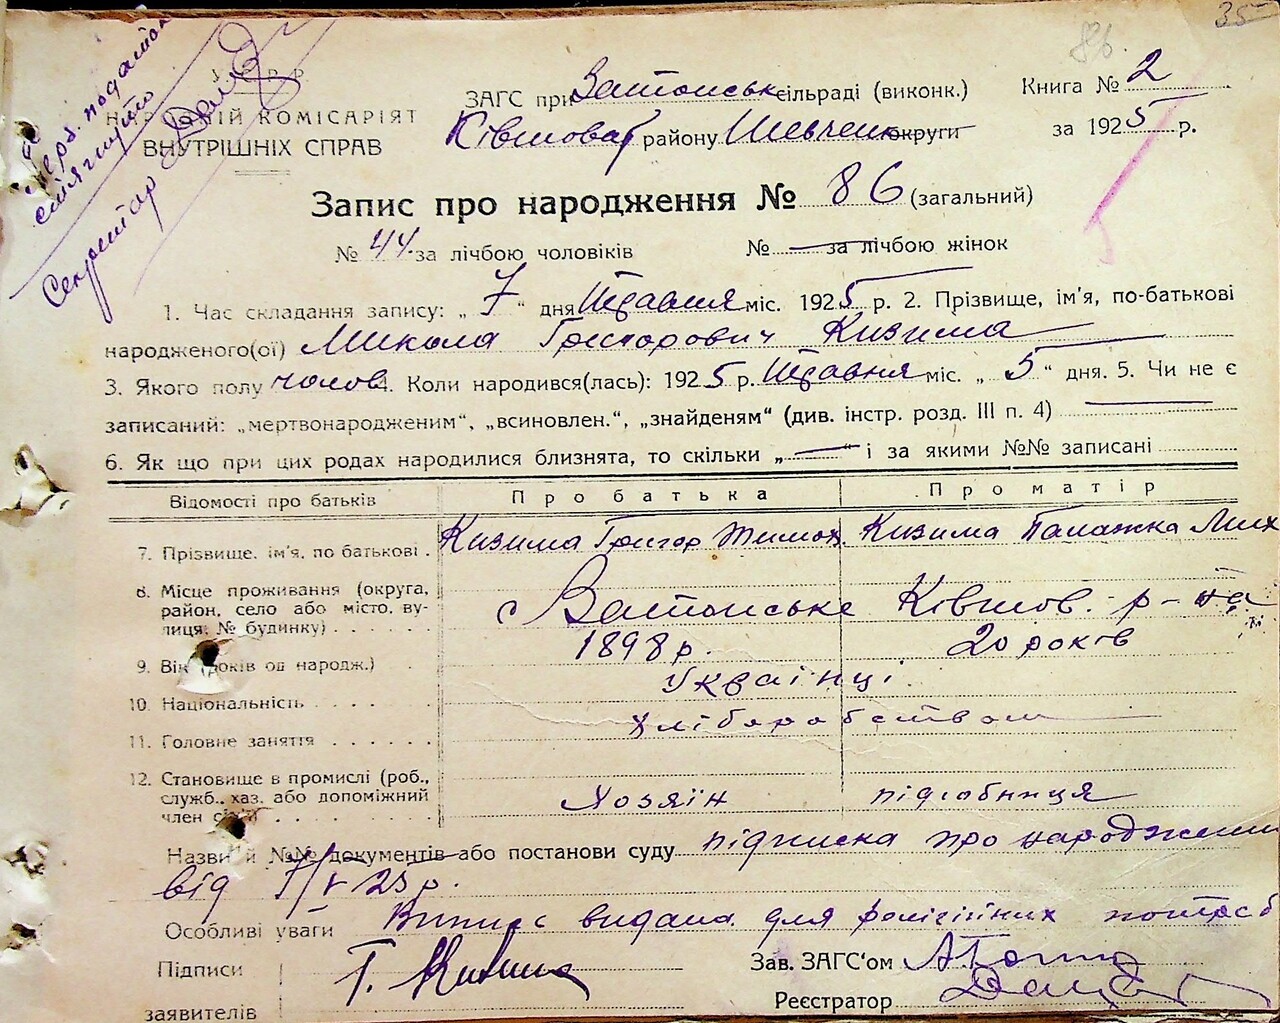 35
86.
Герб. податок
стягнуто
Секретар
У.С.Р.Р.
НАРОДНІЙ КОМІСАРІЯТ
ВНУТРІШНІХ СПРАВ
ЗАГС при Ватонськ сільраді (виконк.) Книга № 2
Ківшоват району Шевченк округи за 1925 р.
Запис про народження № 86 (загальний)
№ 44 за лічбою чоловіків № — за лічбою жінок
1. Час складання запису: „ 7 “ дня Травня міс. 1925 р. 2. Прізвище, ім'я, по-батькові
народженого(ої) Микола Григорович Кизима
3. Якого полу чолов. 4. Коли народився(лась): 1925 р. Травня міс. „ 5 “ дня. 5. Чи не є
записаний: „мертвонародженим“, „всиновлен.“, „знайденям“ (див. інстр. розд. III п. 4) —
6. Як що при цих родах народилися близнята, то скільки „ — “ і за якими №№ записані
Відомості про батьків Про батька Про матір
7. Прізвище, ім'я, по батькові . Кизима Григор Тимох. Кизима Палажка Мих
8. Місце проживання (округа,
район, село або місто, ву-
лиця, № будинку) с Ватонське Ківшов. р-на
9. Вік (років од народж.) 1898 р. 20 років
10. Національність Українці
11. Головне заняття хліборобством
12. Становище в промислі (роб.,
служб., хаз. або допоміжний
член сім'ї) Хозяїн підсобниця
Назви й №№ документів або постанови суду підписка про народження
від 7/V 25 р.
Особливі уваги Випис видана для релігійних потреб
Підписи
заявителів Г. Кизима
Зав. ЗАГС'ом
Реєстратор